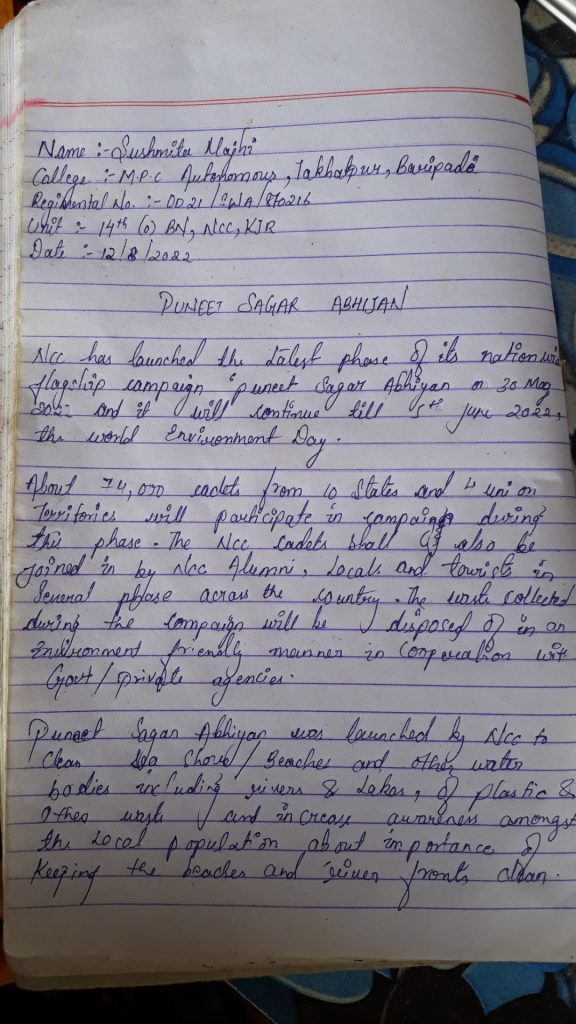 Name :- Sushmita Majhi
College :- M.P.C Autonomous, Takhatpur, Baripada
Regimental No. :- OD21/SWA/870216
Unit :- 14th (O) BN, NCC, KJR
Date :- 12/8/2022
PUNEET SAGAR ABHIJAN
NCC has launched the Latest phase of its nationwid
flagship campaign 'puneet Sagar Abhiyan on 30 May
2022 and it will continue till 5th June 2022,
the world Environment Day.
About 74,000 cadets from 10 States and 4 union
Territories will participate in campaign during
this phase. The NCC cadets shall also be
joined in by NCC Alumni, Locals and tourists in
Several phase across the country. The waste collected
during the campaign will be disposed of in an
Environment friendly manner in cooperation with
Govt/private agencies.
Puneet Sagar Abhiyan was launched by NCC to
clean Sea Shore/Beaches and other water
bodies including rivers & Lakes, of plastic &
Other waste and increase awareness amongst
the Local population about importance of
Keeping the beaches and river fronts clean.